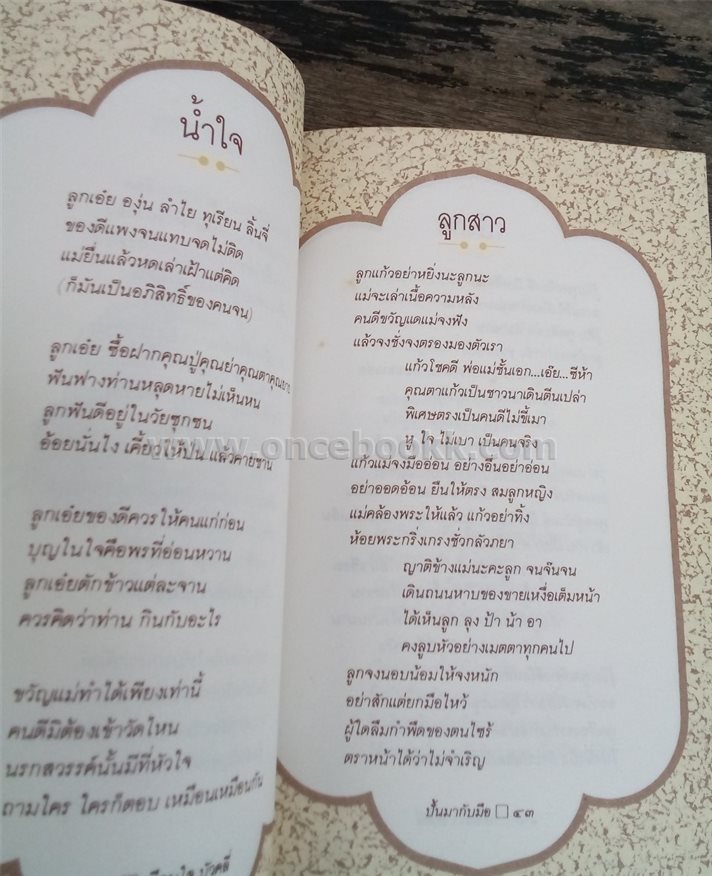 น้ำใจ
ลูกเอ๋ย องุ่น ลำไย ทุเรียน ลิ้นจี่
ของดีแพงจนแทบจดไม่ติด
แม่ยื่นแล้วหดเล่าเฝ้าแต่คิด
(ก็มันเป็นอภิสิทธิ์ของคนจน)
ลูกเอ๋ย ซื้อฝากคุณปู่คุณย่าคุณตาคุณยาย
ฟันฟางท่านหลุดหายไม่เห็นหน
ลูกฟันดีอยู่ในวัยซุกซน
อ้อยนั่นไง เคี้ยวให้ป่น แล้วคายชาน
ลูกเอ๋ยของดีควรให้คนแก่ก่อน
บุญในใจคือพรที่อ่อนหวาน
ลูกเอ๋ยตักข้าวแต่ละจาน
ควรคิดว่าท่าน กินกับอะไร
ขวัญแม่ทำได้เพียงเท่านี้
คนดีมิต้องเข้าวัดไหน
นรกสวรรค์นั้นมีที่หัวใจ
ถามใคร ใครก็ตอบ เหมือนเหมือนกัน
บัวคลี่
ลูกสาว
ลูกแก้วอย่าหยิ่งนะลูกนะ
แม่จะเล่าเนื้อความหลัง
คนดีขวัญแดแม่จงฟัง
แล้วจงชั่งจงตรองมองตัวเรา
แก้วโชคดี พ่อแม่ชั้นเอก...เอ๊ย...ซีห้า
คุณตาแก้วเป็นชาวนาเดินตีนเปล่า
พิเศษตรงเป็นคนดีไม่ขี้เมา
หู ใจ ไม่เบา เป็นคนจริง
แก้วแม่จงมือออ่อน อย่างอื่นอย่าอ่อน
อย่าออดอ้อน ยืนให้ตรง สมลูกหญิง
แม่คล้องพระให้แล้ว แก้วอย่าทิ้ง
ห้อยพระกริ่งเกรงชั่วกลัวภยา
ญาติข้างแม่นะคะลูก จนจ๊นจน
เดินถนนหาบของขายเหงื่อเต็มหน้า
ได้เห็นลูก ลุง ป้า น้า อา
คงลูบหัวอย่างเมตตาทุกคนไป
ลูกจงนอบน้อมให้จงหนัก
อย่าสักแต่ยกมือไหว้
ผู้ใดลืมกำพืดของตนไซร้
ตราหน้าได้ว่าไม่จำเริญ
ปั้นมากับมือ □ ๔๓
www.oncebookk.com